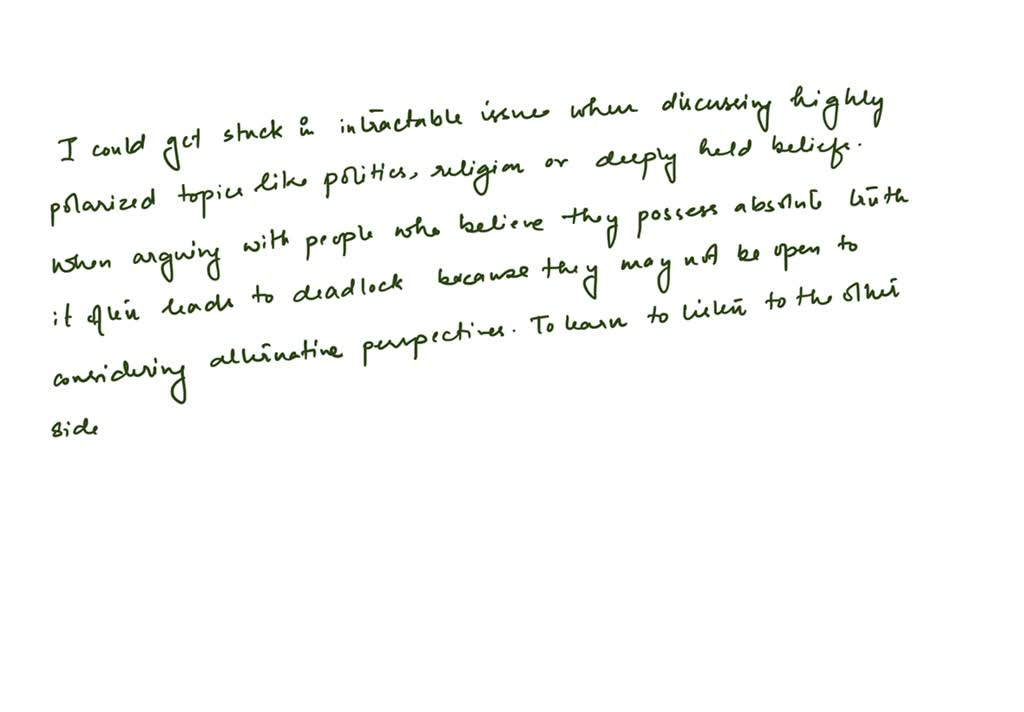 I could get stuck in intractable issues when discussing highly
polarized topics like politics, religion or deeply held beliefs.
When arguing with people who believe they possess absolute truth
it often leads to deadlock because they may not be open to
considering alternative perspectives. To learn to listen to the other
side